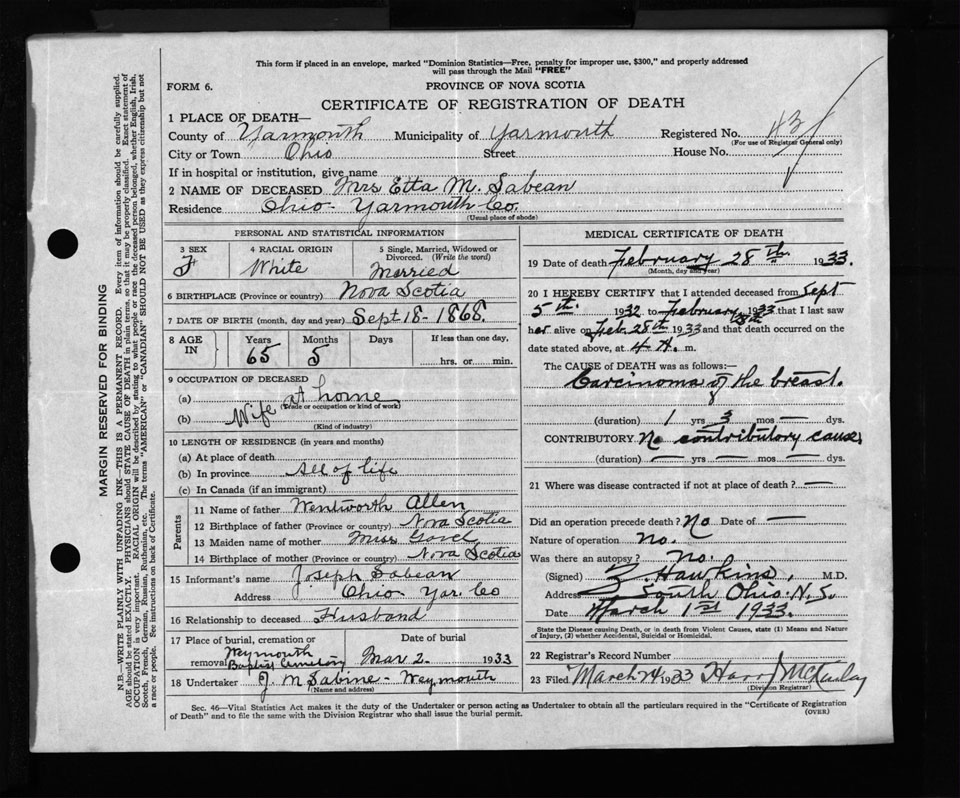 This form if placed in an envelope, marked "Dominion Statistics—Free, penalty for improper use, $300," and properly addressed
will pass through the Mail "FREE"
FORM 6.
PROVINCE OF NOVA SCOTIA
CERTIFICATE OF REGISTRATION OF DEATH
1 PLACE OF DEATH—
County of Yarmouth Municipality of Yarmouth Registered No.
(For use of Registrar General only)
City or Town Ohio Street House No.
If in hospital or institution, give name
2 NAME OF DECEASED Mrs Etta M. Sabean
Residence Ohio - Yarmouth Co.
(Usual place of abode)
PERSONAL AND STATISTICAL INFORMATION
3 SEX 4 RACIAL ORIGIN 5 Single, Married, Widowed or
Divorced. (Write the word)
F White Married
6 BIRTHPLACE (Province or country) Nova Scotia
7 DATE OF BIRTH (month, day and year) Sept 18 - 1868.
8 AGE IN Years Months Days If less than one day,
65 5 hrs. or min.
9 OCCUPATION OF DECEASED
(a) at home
(Trade or occupation or kind of work)
(b) Wife
(Kind of industry)
10 LENGTH OF RESIDENCE (in years and months)
(a) At place of death
(b) In province All of life
(c) In Canada (if an immigrant)
Parents
11 Name of father Wentworth Allen
12 Birthplace of father (Province or country) Nova Scotia
13 Maiden name of mother Miss
14 Birthplace of mother (Province or country) Nova Scotia
15 Informant's name Joseph Sabean
Address Ohio Yar. Co
16 Relationship to deceased Husband
17 Place of burial, cremation or removal Date of burial
Weymouth
Baptist Cemetery Mar 2. 1933
18 Undertaker J. M Sabine - Weymouth
(Name and address)
MEDICAL CERTIFICATE OF DEATH
19 Date of death February 28th 1933.
(Month, day and year)
20 I HEREBY CERTIFY that I attended deceased from Sept
5th. 1932 to February 28th 1933 that I last saw
her alive on Feb. 28th 1933 and that death occurred on
date stated above, at 4 A. m.
The CAUSE of DEATH was as follows:—
Carcinoma of the breast.
(duration) 1 yrs 3 mos — dys.
CONTRIBUTORY No contributory cause
(duration) — yrs — mos — dys.
21 Where was disease contracted if not at place of death? —
Did an operation precede death? No Date of —
Nature of operation no.
Was there an autopsy? no.
(Signed) Hawkins, M.D.
Address South Ohio. N.S.
Date March 1st 1933.
State the Disease causing Death, or in death from Violent Causes, state (1) Means and Nature
of Injury, (2) whether Accidental, Suicidal or Homicidal.
22 Registrar's Record Number
23 Filed March 1933
(Division Registrar)
Sec. 46—Vital Statistics Act makes it the duty of the Undertaker or person acting as Undertaker to obtain all the particulars required in the "Certificate of Registration
of Death" and to file the same with the Division Registrar who shall issue the burial permit.
(OVER)
MARGIN RESERVED FOR BINDING
N.B.—WRITE PLAINLY WITH UNFADING INK—THIS IS A PERMANENT RECORD. Every item of information should be carefully supplied.
AGE should be stated EXACTLY. PHYSICIANS should STATE CAUSE OF DEATH in plain terms, so that it may be properly classified. Exact statement of
OCCUPATION is very important. RACIAL ORIGIN will be described by stating to what people or race the deceased person belonged, whether English, Irish,
Scotch, French, German, Russian, Ruthenian, etc. The terms "AMERICAN" or "CANADIAN" SHOULD NOT BE USED as they express citizenship but not
a race or people. See instructions on back of Certificate.